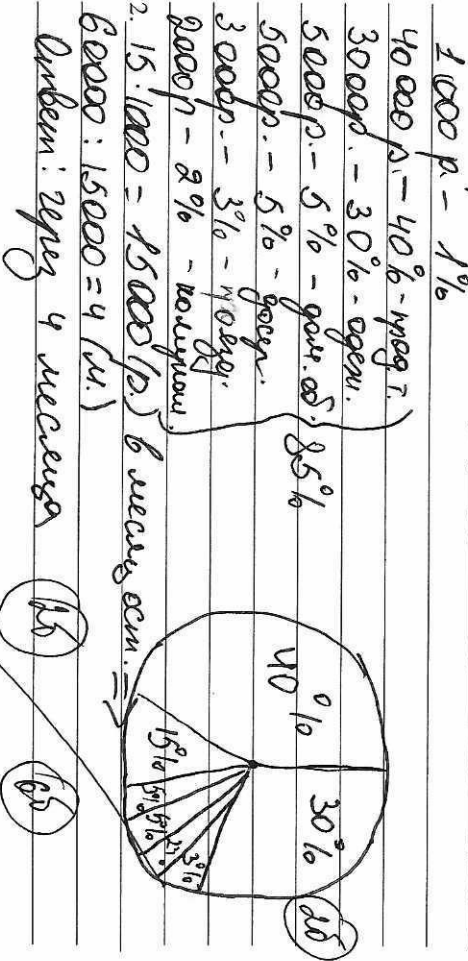 1000 р - 1%
40000 р. - 40% - прод т.
3000р. - 30% - одеж.
5000р. - 5% - дом. об.
5000р. - 5% - досуг.
3000р. - 3% - проезд.
2000р - 2% - коммун.
85%
2. 15·1000 = 15000 (р.) в месяц ост. =>
60000 : 15000 = 4 (м.)
Ответ: через 4 месяца
40%
30%
15%
5%
5%
2%
3%
2б
6б